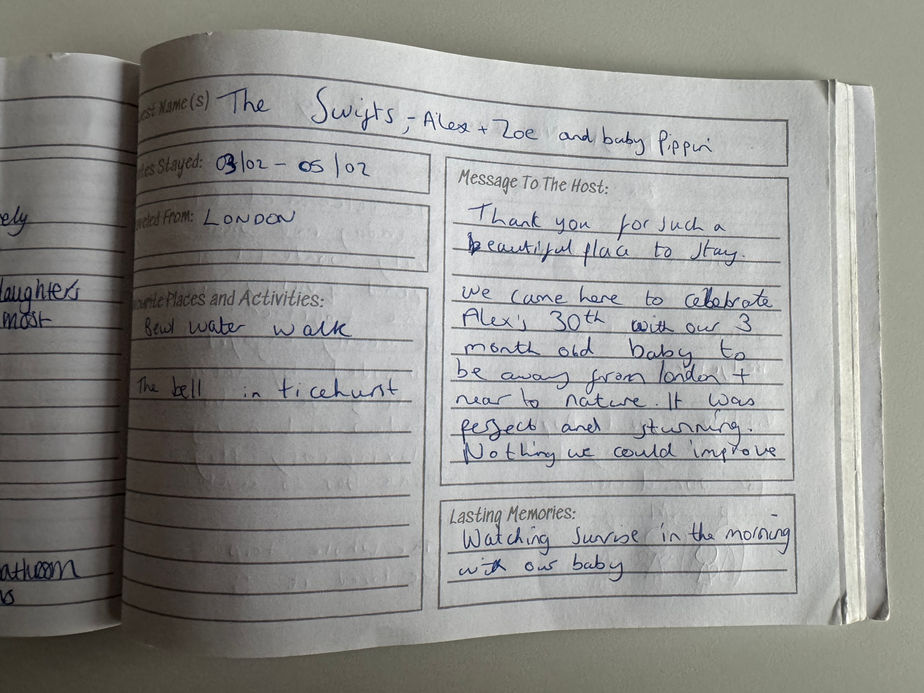 ely
laughters
most
athroom
est Name(s) The Swifts, - Alex + Zoe and baby Pippin
tes Stayed: 03/02 - 05/02
veled From: LONDON
ourite Places and Activities:
Bewl water walk
The bell in ticehurst
Message To The Host:
Thank you for such a
beautiful place to stay.
We came here to celebrate
Alex's 30th with our 3
month old baby to
be away from london +
near to nature. It was
perfect and stunning.
Nothing we could improve
Lasting Memories:
Watching Sunrise in the morning
with our baby